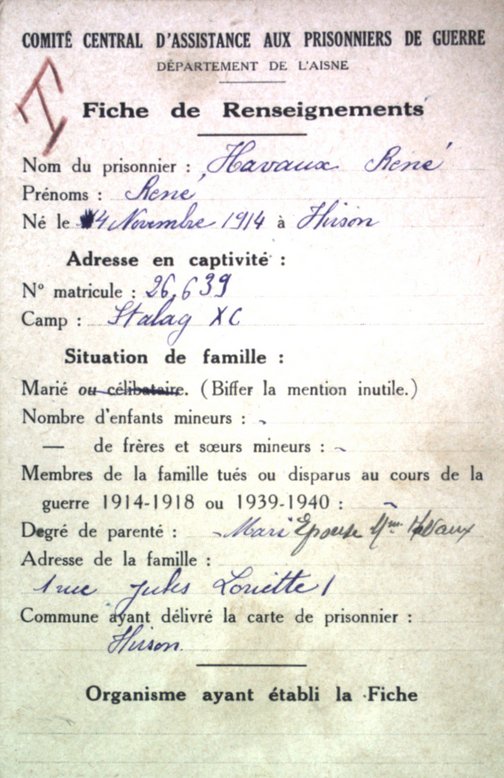 COMITÉ CENTRAL D'ASSISTANCE AUX PRISONNIERS DE GUERRE
DÉPARTEMENT DE L'AISNE
I
Fiche de Renseignements
Nom du prisonnier : Havaux René
Prénoms : René
Né le 4 Novembre 1914 à Hirson
Adresse en captivité :
N° matricule : 26.639
Camp : Stalag XC
Situation de famille :
Marié ou célibataire. (Biffer la mention inutile.)
Nombre d'enfants mineurs : -
— de frères et sœurs mineurs : -
Membres de la famille tués ou disparus au cours de la
guerre 1914-1918 ou 1939-1940 : -
Degré de parenté : - Mari Epouse Mme Havaux
Adresse de la famille :
1 rue Jules
Commune ayant délivré la carte de prisonnier :
Hirson.
Organisme ayant établi la Fiche